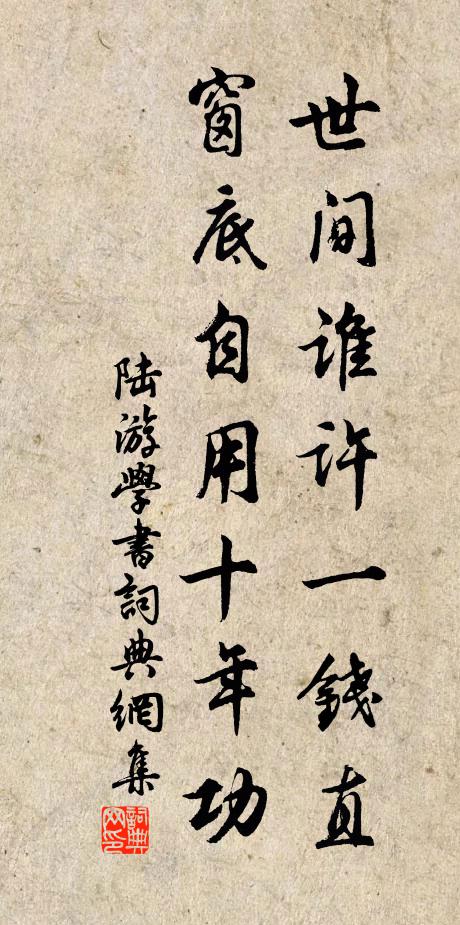 世间谁许一錢直
窗底自用十年功
陆游學書詞典網集
詞典网印